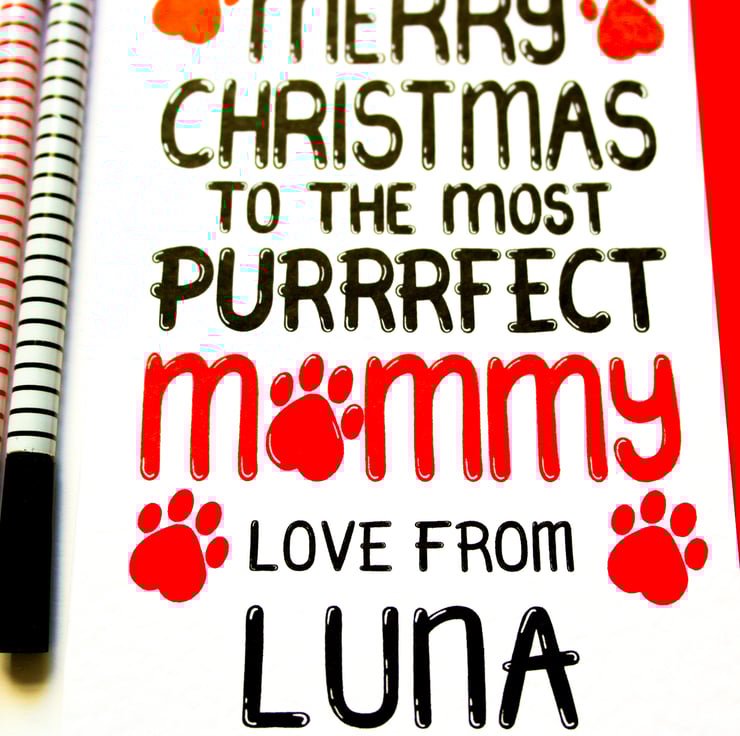 MERRY
CHRISTMAS
TO THE MOST
PURRRFECT
mommy
LOVE FROM
LUNA